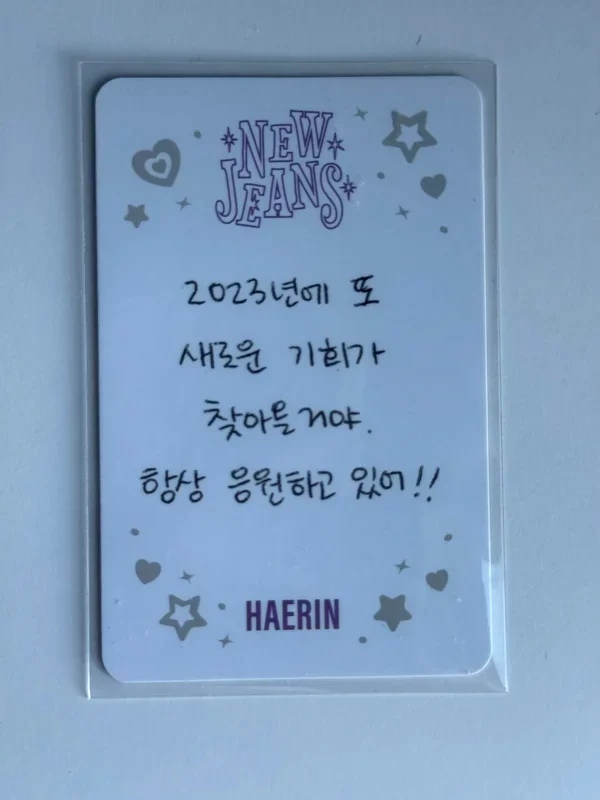 NEW
JEANS
2023년에 또
새로운 기회가
찾아올거야.
항상 응원하고 있어!!
HAERIN